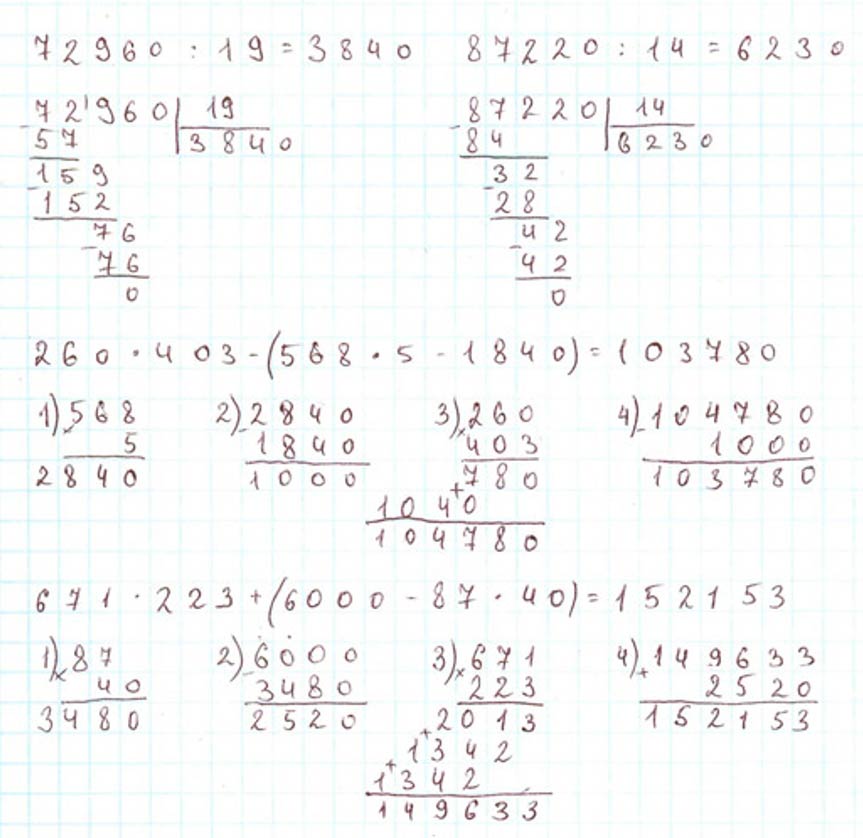 72960 : 19 = 3840 87220 : 14 = 6230
72'960 19 87220 14
- 57 3840 - 84 6230
159 32
- 152 - 28
76 42
- 76 - 42
0 0
260 · 403 - (568 · 5 - 1840) = 103780
1) 568 2) 2840 3) 260 4) 104780
× 5 - 1840 × 403 - 1000
2840 1000 780 103780
+ 1040
104780
671 · 223 + (6000 - 87 · 40) = 152153
1) 87 2) 6000 3) 671 4) 149633
× 40 - 3480 × 223 + 2520
3480 2520 2013 152153
+ 1342
+ 1342
149633